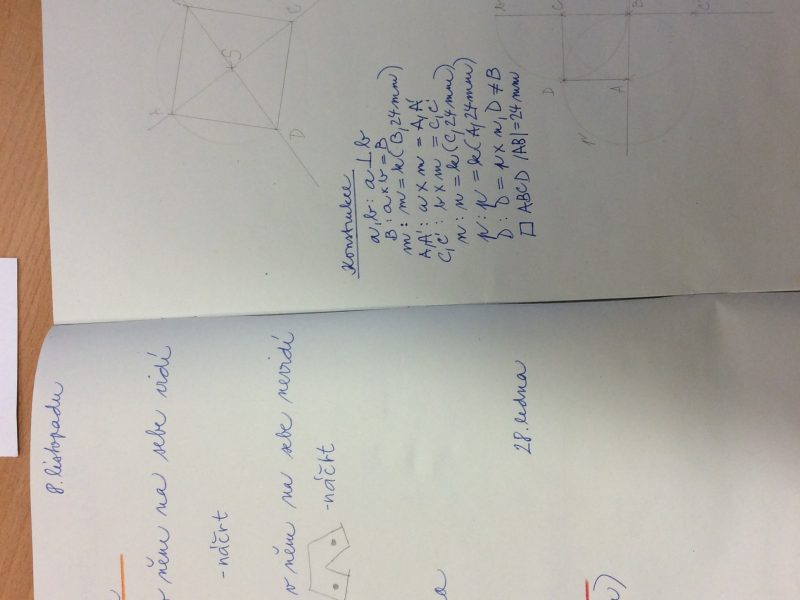 A
S
C
D
Konstrukce
a, b : a ⊥ b
B : a × b = B
m : m = k(B, 24 mm)
A, A' : a × m = A, A'
C, C' : b × m = C, C'
n : n = k(C, 24 mm)
p : p = k(A, 24 mm)
D : D = p × n, D ≠ B
□ ABCD |AB| = 24 mm
C
B
C'
D
A
p
8. listopadu
v něm na sebe vidí
- náčrt
v něm na sebe nevidí
- náčrt
28. ledna